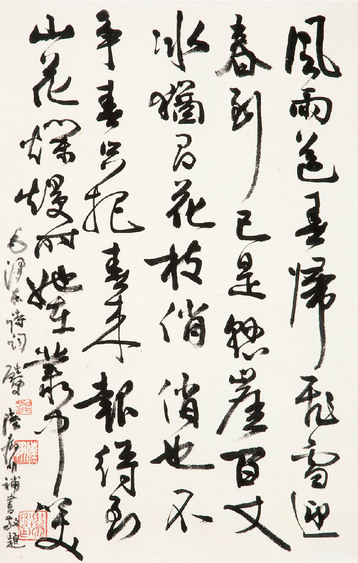 風雨送春歸飛雪迎
春到已是懸崖百丈
冰猶有花枝俏俏也不
爭春只把春來報待到
山花爛熳時她在叢中笑
毛澤東詩詞
補書敬題